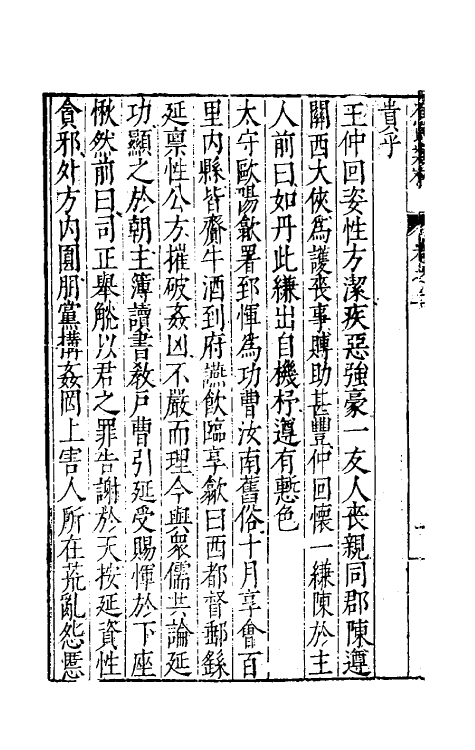 貴乎
王仲回姿性方潔疾惡強豪一友人喪親同郡陳遵
關西大俠爲護喪事賻助甚豐仲回懷一縑陳於主
人前曰如丹此縑出自機杼遵有慙色
太守歐陽歙署郅惲爲功曹汝南舊俗十月享會百
里內縣皆齎牛酒到府讌飮臨享歙曰西都督郵繇
延禀性公方摧破姦凶不嚴而理今與衆儒共論延
功顯之於朝主簿讀書敎戶曹引延受賜惲於下座
愀然前曰司正舉觥以君之罪告謝於天按延資性
貪邪外方內圓朋黨搆姦罔上害人所在荒亂怨慝